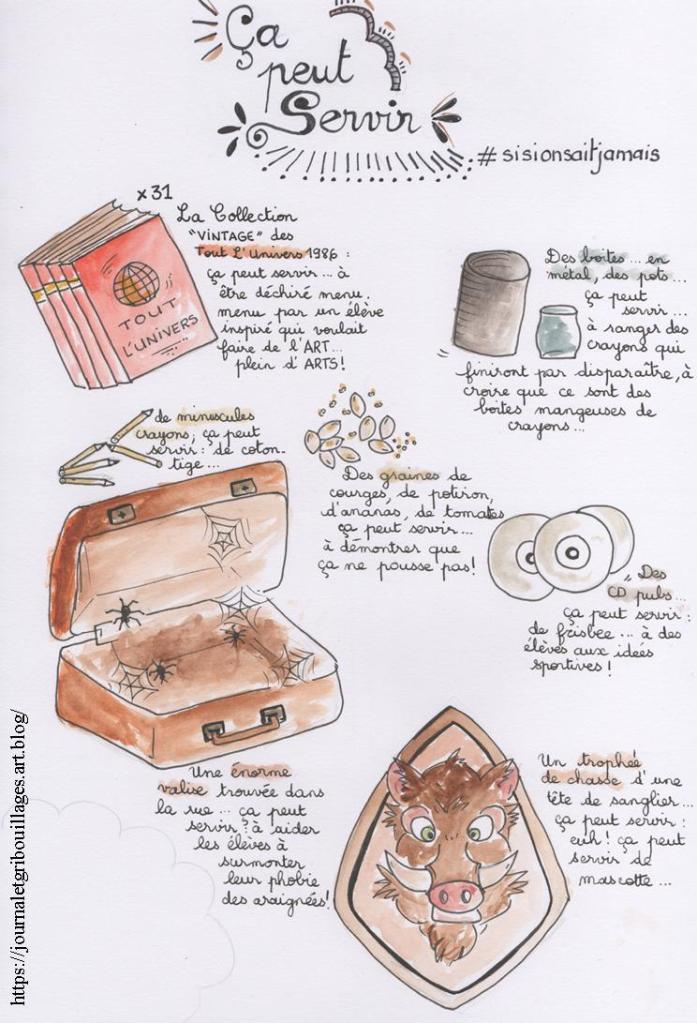 Ça
peut
Servir
#sisionsaitjamais
x 31
La Collection
"VINTAGE" des
Tout L'Univers 1986 :
ça peut servir ... à
être déchiré menu,
menu par un élève
inspiré qui voulait
faire de l'ART...
plein d'ARTS!
TOUT
L'UNIVERS
Des boites ... en
métal, des pots...
ça peut
servir ...
à ranger des
crayons qui
finiront par disparaître, à
croire que ce sont des
boites mangeuses de
crayons...
de minuscules
crayons, ça peut
servir : de coton-
tige ...
Des graines de
courges, de potiron,
d'ananas, de tomates
ça peut servir...
à démontrer que
ça ne pousse pas!
Des
CD pubs...
ça peut servir :
de frisbee ... à des
élèves aux idées
sportives!
Une énorme
valise trouvée dans
la rue ... ça peut
servir : à aider
les élèves à
surmonter
leur phobie
des araignées!
Un trophée
de chasse d'une
tête de sanglier...
ça peut servir :
euh! ça peut
servir de
mascotte ...
https://journaletgribouillages.art.blog/